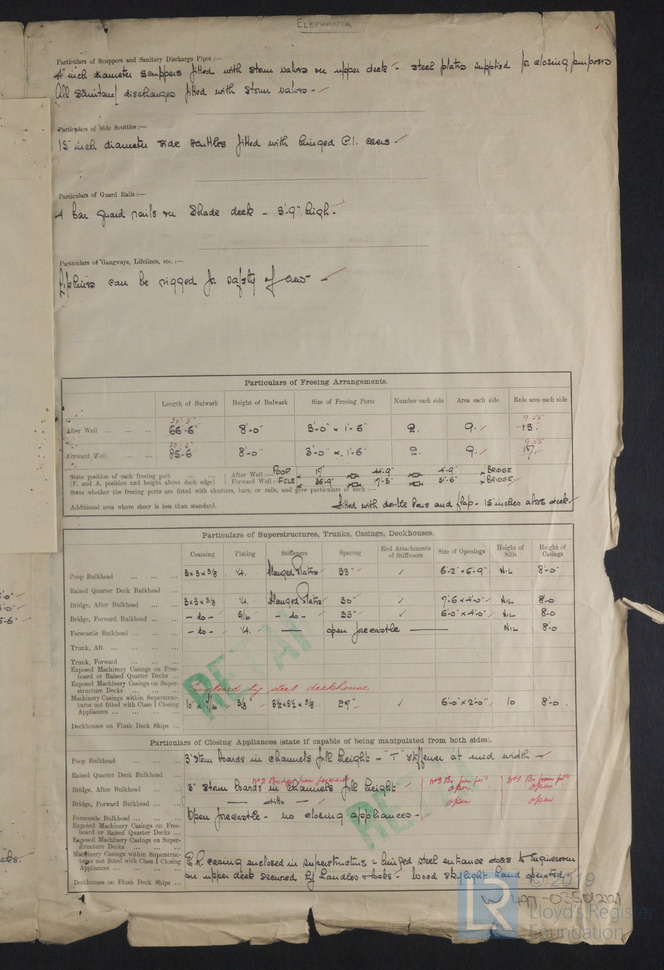 ELEPHANTA
Particulars of Scuppers and Sanitary Discharge Pipes :—
4" inch diameter scuppers fitted with storm valves on upper deck - steel plates supplied for closing purposes
All sanitary discharges fitted with storm valves -
Particulars of Side Scuttles :—
15" inch diameter side scuttles fitted with hinged C.I. covers
Particulars of Guard Rails :—
4 bar guard rails on Shade deck - 3'-9" high.
Particulars of Gangways, Lifelines, etc. :—
Lifelines can be rigged for safety of crew -
Particulars of Freeing Arrangements.
Length of Bulwark Height of Bulwark Size of Freeing Ports Number each side Area each side Rule area each side
After Well 66'-6" 8'-0" 3'-0" × 1'-6" 2. 9. 13.
Forward Well 85'-6" 8'-0" 3'-0" × 1'-6" 2. 9. 17.
State position of each freeing port After Well :— POOP BRIDGE
(F. and A. position and height above deck edge) Forward Well :— FCLE BRIDGE
State whether the freeing ports are fitted with shutters, bars, or rails, and give particulars of such :—
fitted with double bars and flap - 15 inches above deck
Additional area where sheer is less than standard.
Particulars of Superstructures, Trunks, Casings, Deckhouses.
Coaming Plating Stiffeners Spacing End Attachments of Stiffeners Size of Openings Height of Sills Height of Casings
Poop Bulkhead 3×3×3/8 1/4 flanged plates 33" ✓ 6'-2" × 6'-9" NIL 8'-0"
Raised Quarter Deck Bulkhead
Bridge, After Bulkhead 3×3×3/8 1/4 flanged plates 30" ✓ 7'-6" × 4'-0" NIL 8'-0
Bridge, Forward Bulkhead - do - 5/16 - do - 33" ✓ 6'-0" × 4'-0" NIL 8'-0
Forecastle Bulkhead - do - 1/4 open forecastle NIL 8'-0
Trunk, Aft
Trunk, Forward
Exposed Machinery Casings on Freeboard or Raised Quarter Decks
Exposed Machinery Casings on Superstructure Decks
enclosed by steel deckhouse
Machinery Casings within Superstructures not fitted with Class I Closing Appliances 3/8 29" ✓ 6'-0" × 2'-0" 10 8'-0
Deckhouses on Flush Deck Ships
Particulars of Closing Appliances (state if capable of being manipulated from both sides).
Poop Bulkhead 3" storm boards in channels full height - "T" stiffener at mid width
Raised Quarter Deck Bulkhead
Bridge, After Bulkhead 3" storm boards in channels full height open open
Bridge, Forward Bulkhead ditto open open
Forecastle Bulkhead Open forecastle - no closing appliances -
Exposed Machinery Casings on Freeboard or Raised Quarter Decks
Exposed Machinery Casings on Superstructure Decks
Machinery Casings within Superstructures not fitted with Class I Closing Appliances E.R. casing enclosed in superstructure - hinged steel entrance doors to Engineroom
on upper deck secured by handles & locks - wood skylight hand operated.
Deckhouses on Flush Deck Ships
RETAIN
RETAIN
W 497-0250 2/2
LR
© 2019
Lloyd's Register
Foundation